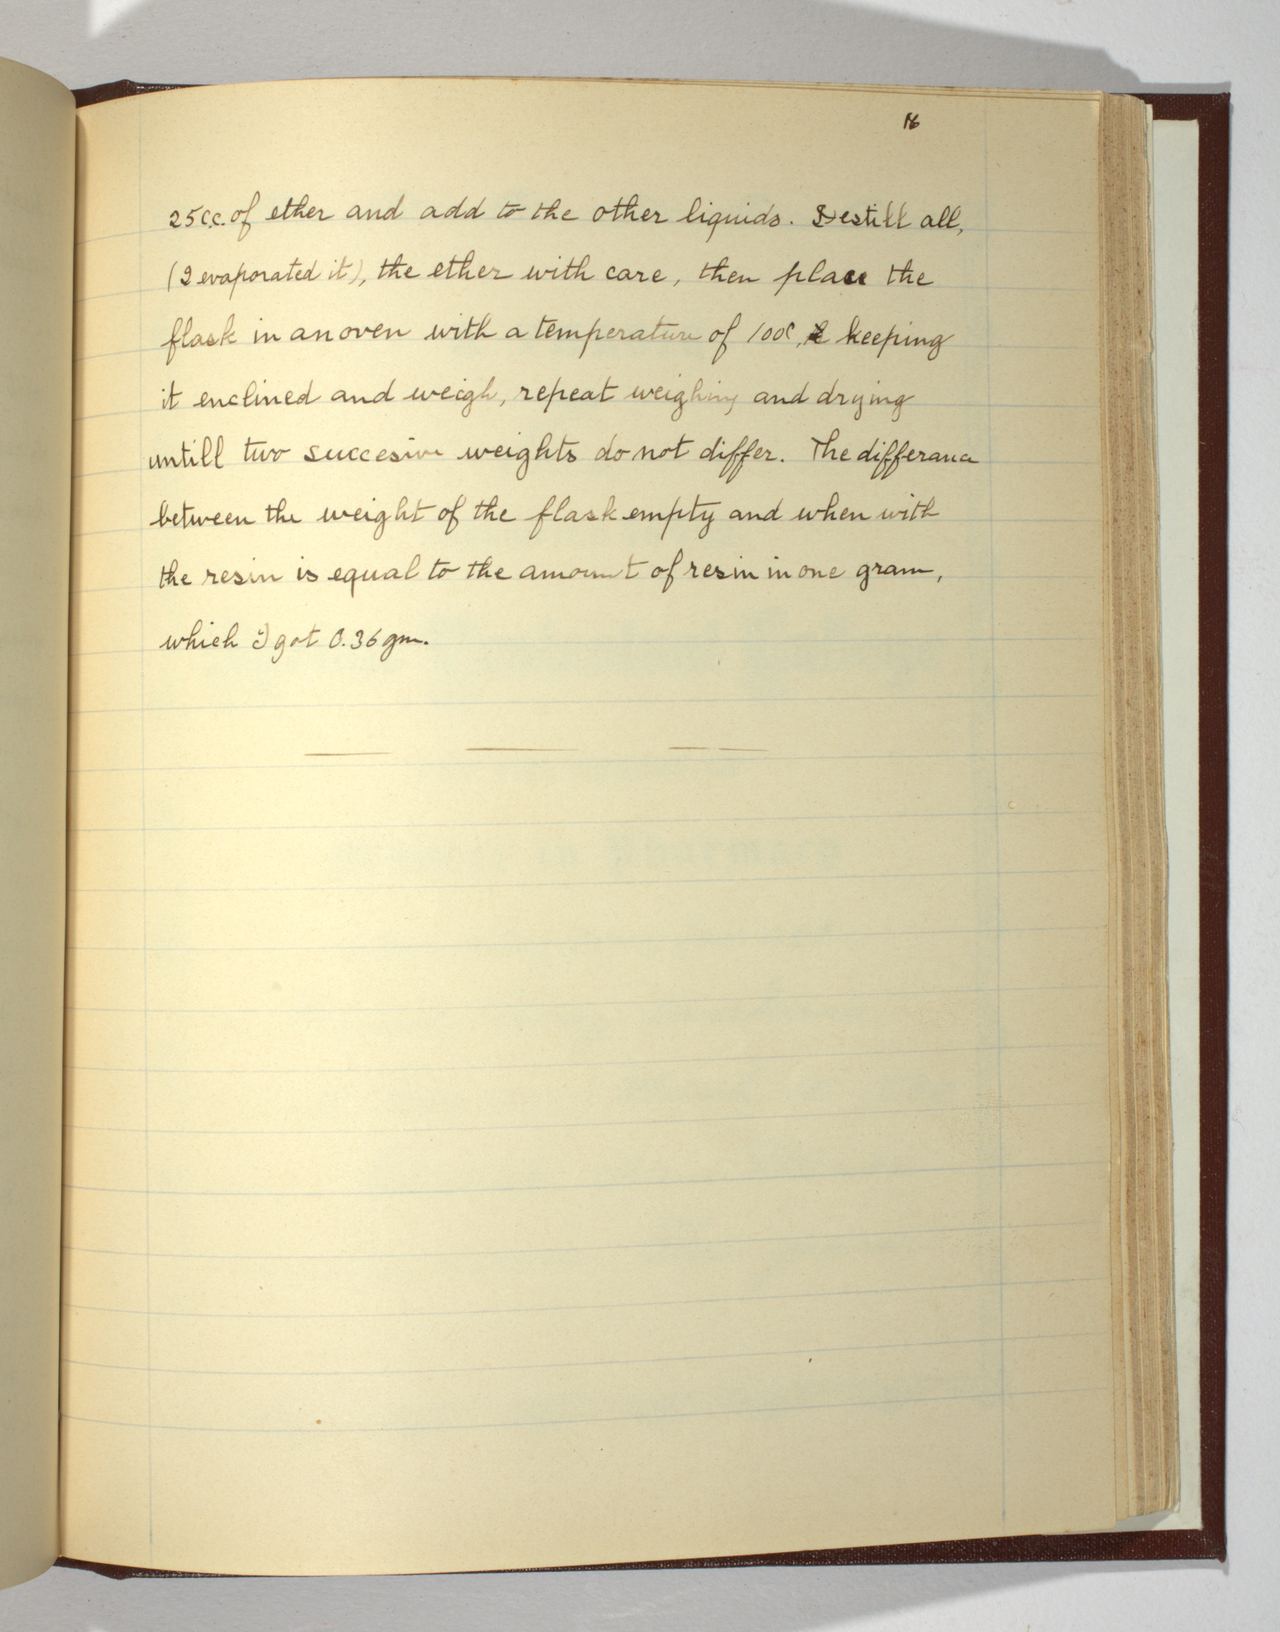 16
25cc. of ether and add to the other liquids. Destill all,
(I evaporated it), the ether with care, then place the
flask in an oven with a temperature of 100C, keeping
it enclined and weigh, repeat weighing and drying
untill two succesive weights do not differ. The differance
between the weight of the flask empty and when with
the resin is equal to the amount of resin in one gram,
which I got 0.36 gm.